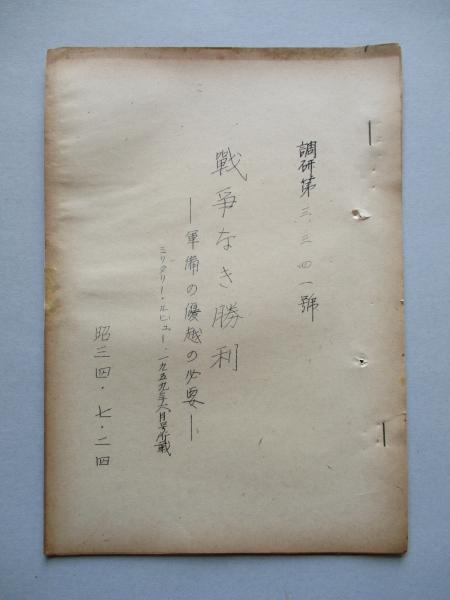 調研第三、三四一號
戰爭なき勝利
―軍備の優越の必要―
ミリタリー・ルビュー・一九五九年六月号所載
昭三四・七・二四